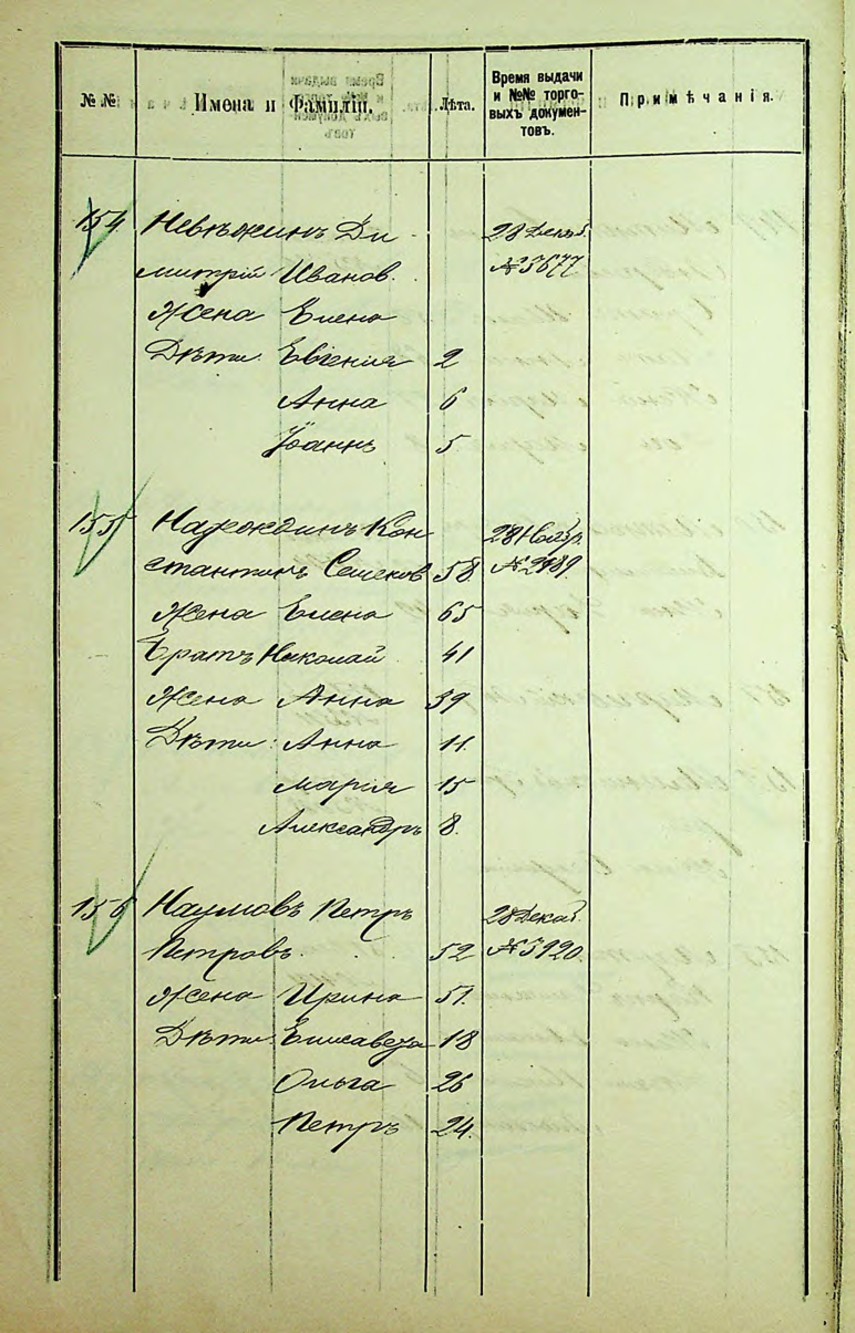 №№ Имена и Фамиліи. Лѣта. Время выдачи и №№ торговыхъ документовъ. Примѣчанія.
154 Невѣжинъ Ди 28 Декаб.
митрій Иванов. №3677
Жена Елена
Дѣти: Евгенія 2
Анна 6
Іоаннъ 5
155 Кон 28 Ноябр.
стантинъ Семенов 58 №2989.
Жена Елена 65
Братъ Николай 41
Жена Анна 39
Дѣти: Анна 11.
Марія 15
Александръ 8.
156 Наумовъ Петръ 28 Декаб.
Петровъ. 52 №3920.
Жена Ирина 51.
Дѣти: Елисавета 18
Ольга 26
Петръ 24.